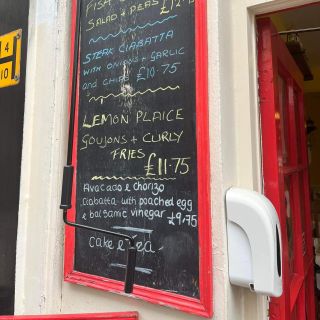 FISH
SALAD + PEAS £12.75
STEAK CIABATTA
WITH ONIONS + GARLIC
AND CHIPS £10.75
LEMON PLAICE
GOUJONS + CURLY
FRIES
£11.75
Avacado & chorizo
Ciabatta with poached egg
& balsamic vinegar £9.75
cake & tea
4
10